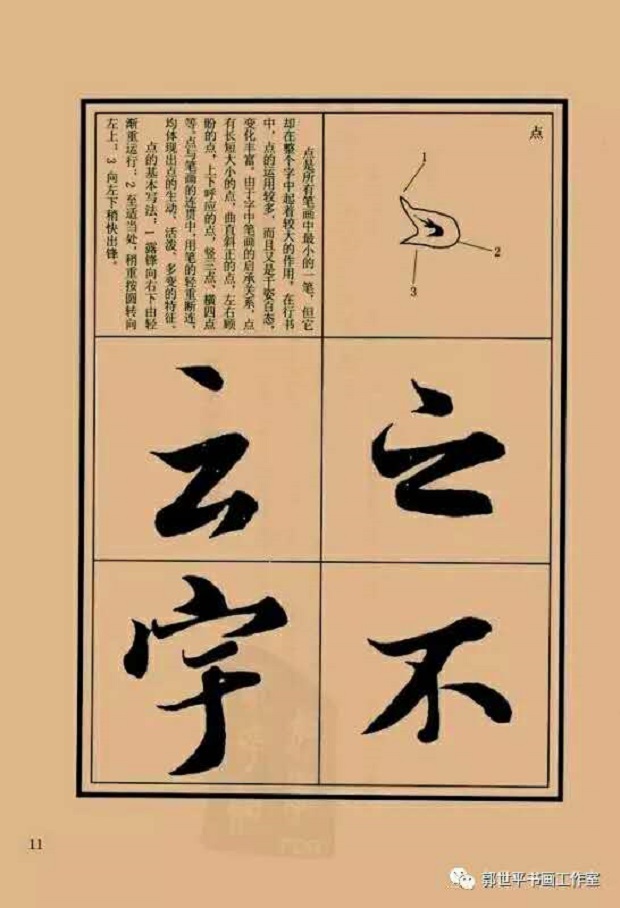 点
1
2
3
点是所有笔画中最小的一笔，但它
却在整个字中起着较大的作用。在行书
中，点的运用较多，而且又是千姿百态，
变化丰富。由于字中笔画的启承关系，点
有长短大小的点，曲直斜正的点，左右顾
盼的点，上下呼应的点，竖三点、横四点
等。点与笔画的连贯中，用笔的轻重断连，
均体现出点的生动、活泼、多变的特征。
点的基本写法：1 露锋向右下由轻
渐重运行；2 至适当处，稍重按圆转向
左上；3 向左下稍快出锋。
之
云
不
字
11
郭世平书画工作室